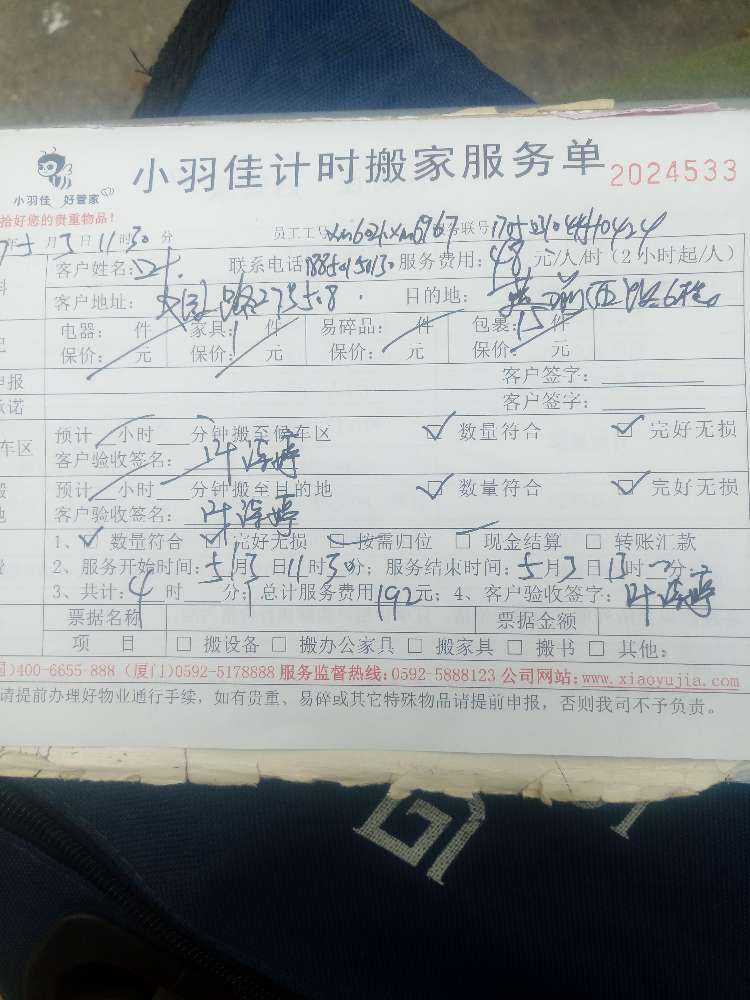 小羽佳 好管家
小羽佳计时搬家服务单 2024533
拾好您的贵重物品！
员工工号 联号
年5月3日11时30分
客户姓名：叶 联系电话 服务费用：48元/人/时（2小时起/人）
客户地址： 目的地：
电器： 件 家具：1件 易碎品： 件 包裹：15件
保价： 元 保价： 元 保价： 元 保价： 元
申报 客户签字：
承诺 客户签字：
车区 预计 小时 分钟搬至候车区 数量符合 完好无损
客户验收签名：叶 婷
预计 小时 分钟搬至目的地 数量符合 完好无损
地 客户验收签名：叶 婷
1、 数量符合 完好无损 按需归位 现金结算 转账汇款
2、服务开始时间：5月3日11时30分；服务结束时间：5月3日13时 分；
3、共计：4时 分；总计服务费用192元；4、客户验收签字：叶 婷
票据名称 票据金额
项 目 搬设备 搬办公家具 搬家具 搬书 其他：
国)400-6655-888 (厦门)0592-5178888 服务监督热线：0592-5888123 公司网站：www.xiaoyujia.com
请提前办理好物业通行手续，如有贵重、易碎或其它特殊物品请提前申报，否则我司不予负责。